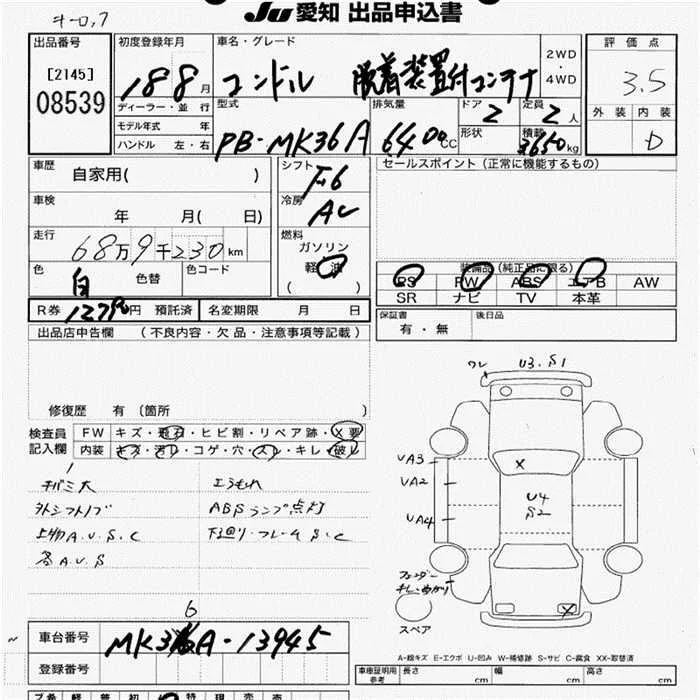 キーロ,7
JU 愛知 出品申込書
出品番号
[2145]
08539
初度登録年月
18 8 月
車名・グレード
コンドル 脱着装置付コンテナ
2WD
・
4WD
評価点
3.5
外装 内装
D
ディーラー・並行
モデル年式 年
ハンドル 左・右
型式
PB-MK36A
排気量
6400 CC
ドア
2
定員
2 人
形状
積載
3650 kg
車歴
自家用( )
シフト
F6
セールスポイント(正常に機能するもの)
車検
年 月( 日)
冷房
AC
走行
68万9千230km
燃料
ガソリン
軽油
( )
色
白
色替
色コード
装備品(純正品に限る)
PS PW ABS エアB AW
SR ナビ TV 本革
R券 12790円 預託済
名変期限 月 日
保証書
有・無
後日品
出品店申告欄 (不良内容・欠品・注意事項等記載)
修復歴 有〔箇所 〕
検査員
記入欄
FW キズ・飛石・ヒビ割・リペア跡・X要
内装 キズ・汚レ・コゲ・穴・スレ・キレ・破レ
外シフトノブ
ABSランプ点灯
上物A.U.S.C
下廻り・フレームS.C
各A.U.S
ワレ U3.S1
X
UA3
UA2
UA4
U4
S2
フェンダー
X
スペア
A-線キズ E-エクボ U-凹み W-補修跡 S-サビ C-腐食 XX-取替済
6
車台番号
MK36A-13945
登録番号
車庫証明用
参考
長さ cm
幅 cm
高さ cm